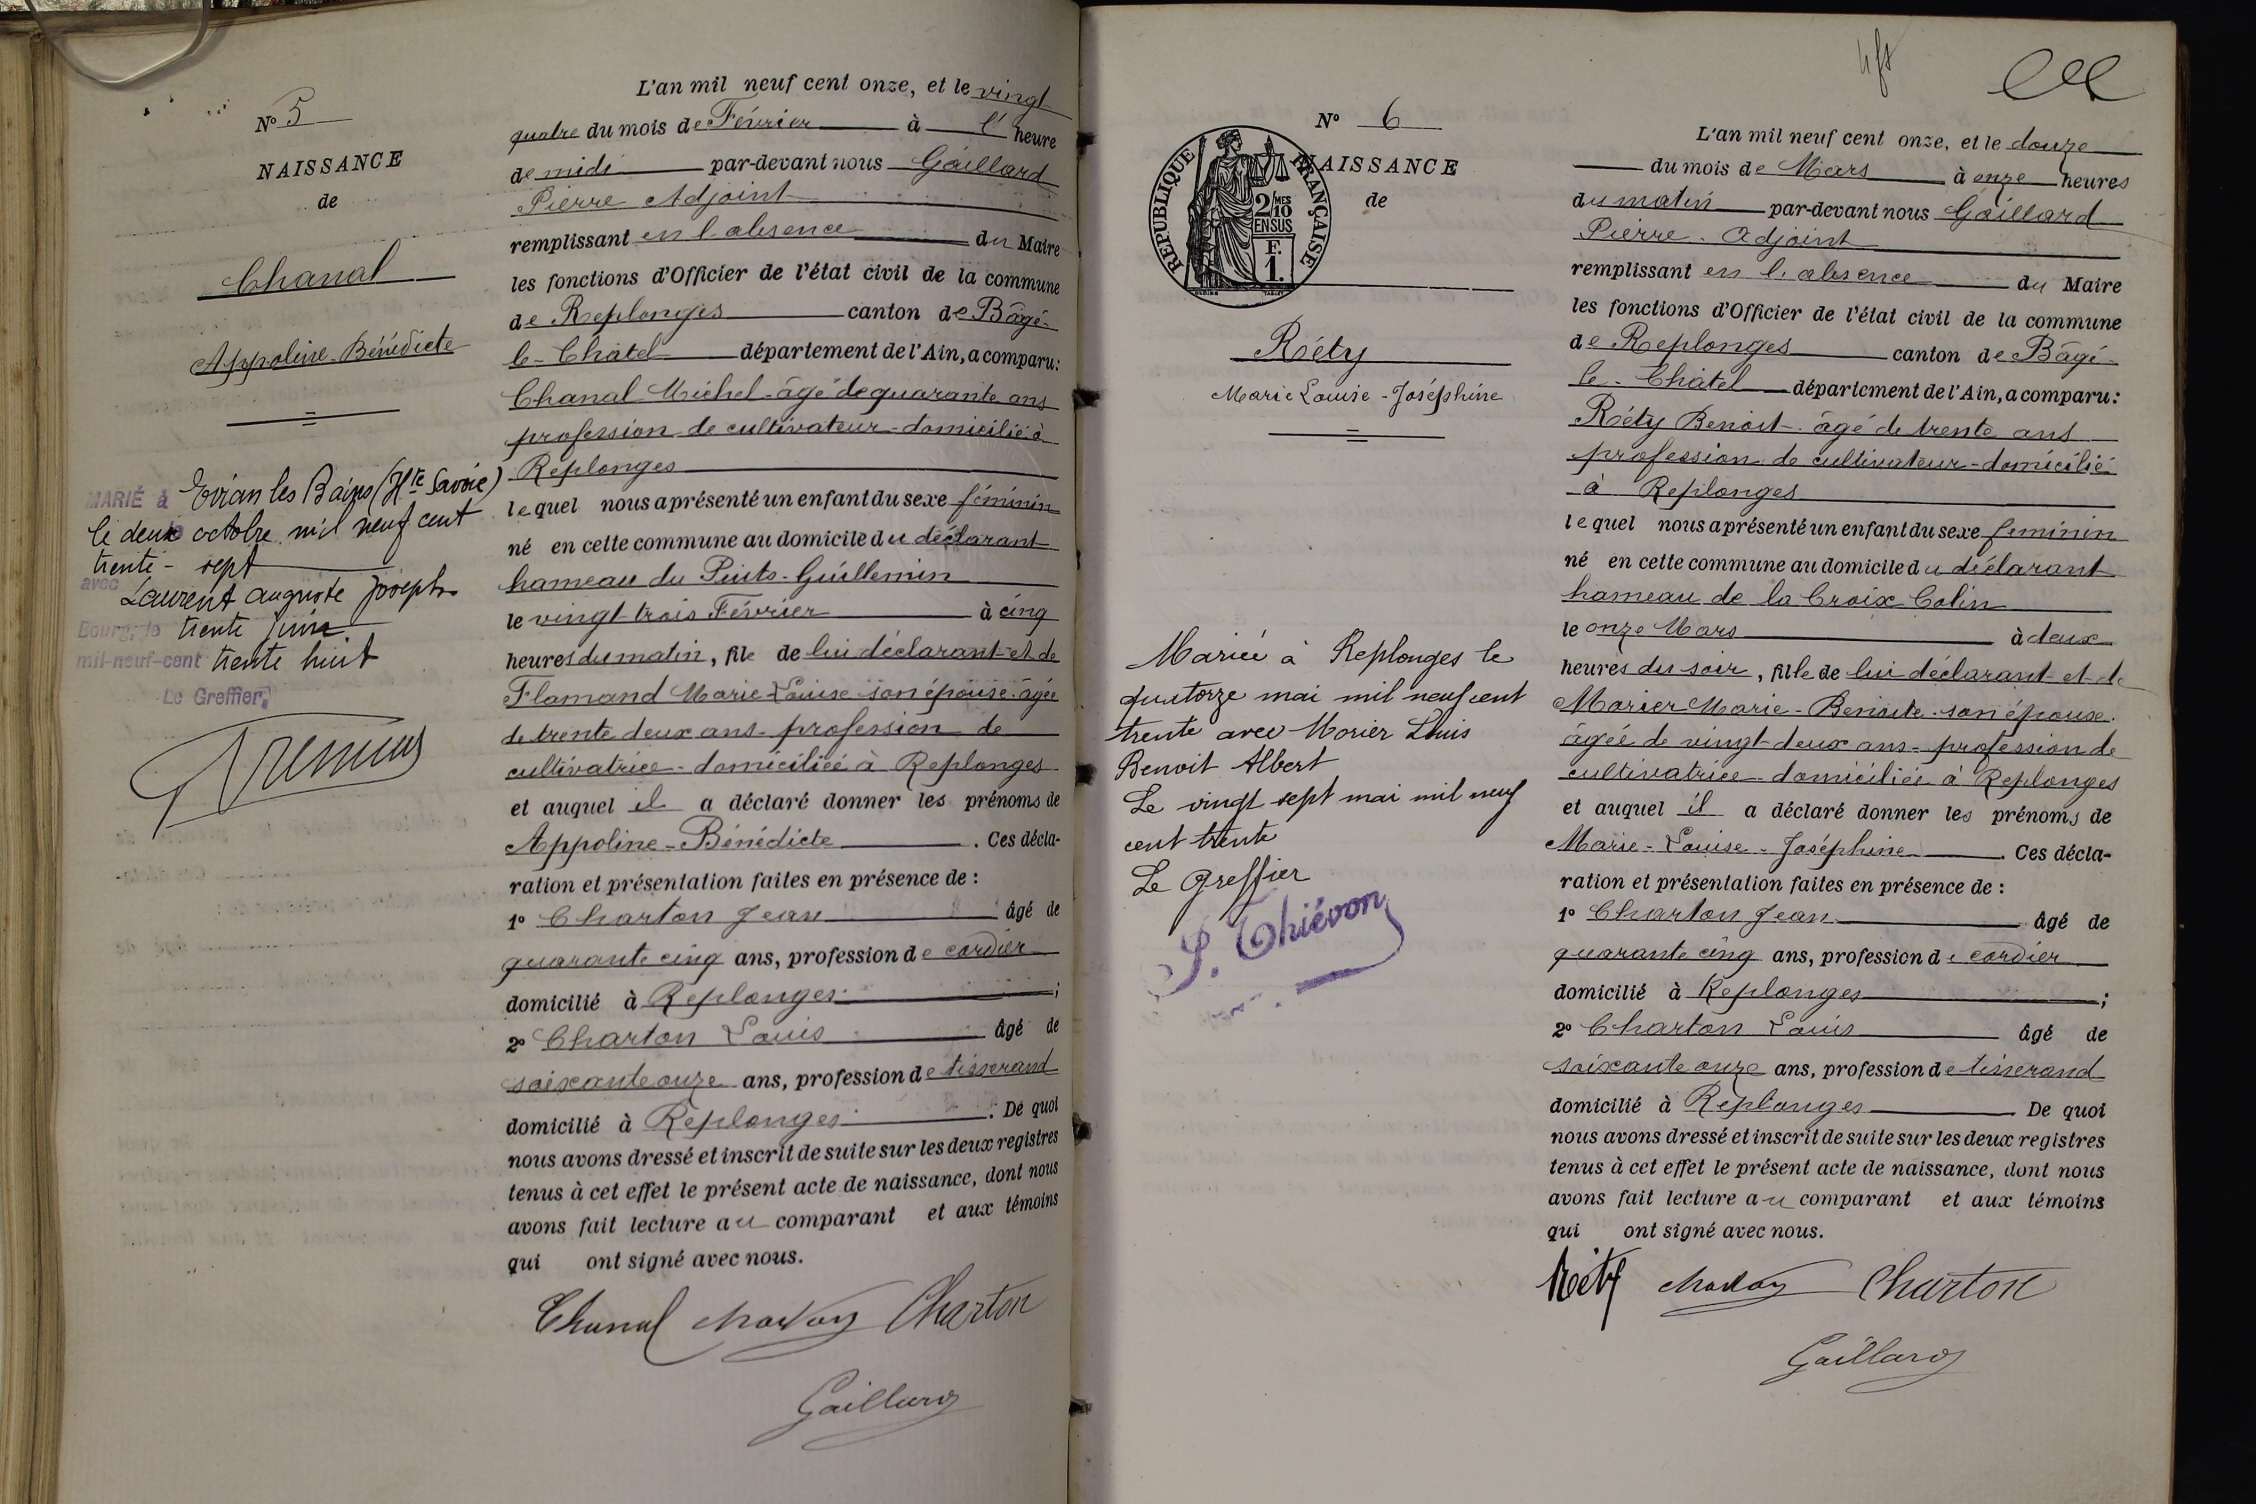 N° 5
NAISSANCE
de
Chanal
Appoline-Bénédicte
MARIÉ à Evian les Bains (Hte Savoie)
le deux octobre mil neuf cent
trente-sept
avec Laurent auguste Joseph
Bourg, le trente juin
mil-neuf-cent trente huit
Le Greffier,
L'an mil neuf cent onze, et le vingt
quatre du mois de Février à l' heure
de midi par-devant nous Gaillard
Pierre Adjoint
remplissant en l'absence du Maire
les fonctions d'Officier de l'état civil de la commune
de Replonges canton de Bâgé-
le-Châtel département de l'Ain, a comparu:
Chanal Michel-âgé de quarante ans
profession de cultivateur-domicilié à
Replonges
lequel nous a présenté un enfant du sexe féminin
né en cette commune au domicile du déclarant
hameau du Puits-Guillemin
le vingt trois Février à cinq
heures du matin, file de lui déclarant et de
Flamand Marie-Louise son épouse-âgée
de trente deux ans-profession de
cultivatrice-domiciliée à Replonges
et auquel il a déclaré donner les prénoms de
Appoline-Bénédicte. Ces décla-
ration et présentation faites en présence de :
1° Charton Jean âgé de
quarante cinq ans, profession de cordier
domicilié à Replonges;
2° Charton Louis âgé de
soixante onze ans, profession de tisserand
domicilié à Replonges. De quoi
nous avons dressé et inscrit de suite sur les deux registres
tenus à cet effet le présent acte de naissance, dont nous
avons fait lecture au comparant et aux témoins
qui ont signé avec nous.
Chanal Charton Charton
Gaillard
N° 6
NAISSANCE
de
RÉPUBLIQUE FRANÇAISE
2/10 MES
EN SUS
F.
1.
Réty
Marie Louise-Joséphine
Mariée à Replonges le
quatorze mai mil neuf cent
trente avec Morier Louis
Benoit Albert
Le vingt sept mai mil neuf
cent trente
Le Greffier
Thiévon
L'an mil neuf cent onze, et le douze
du mois de Mars à onze heures
du matin par-devant nous Gaillard
Pierre-Adjoint
remplissant en l'absence du Maire
les fonctions d'Officier de l'état civil de la commune
de Replonges canton de Bâgé-
le-Châtel département de l'Ain, a comparu:
Réty Benoit-âgé de trente ans
profession de cultivateur-domicilié
à Replonges
lequel nous a présenté un enfant du sexe feminin
né en cette commune au domicile du déclarant
hameau de la Croix Colin
le onze Mars à deux
heures du soir, fille de lui déclarant et de
Morier Marie-Benoite son épouse
âgée de vingt-deux ans-profession de
cultivatrice-domiciliée à Replonges
et auquel il a déclaré donner les prénoms de
Marie-Louise-Joséphine. Ces décla-
ration et présentation faites en présence de :
1° Charton Jean âgé de
quarante cinq ans, profession de cordier
domicilié à Replonges;
2° Charton Louis âgé de
soixante onze ans, profession de tisserand
domicilié à Replonges De quoi
nous avons dressé et inscrit de suite sur les deux registres
tenus à cet effet le présent acte de naissance, dont nous
avons fait lecture au comparant et aux témoins
qui ont signé avec nous.
Réty Charton Charton
Gaillard